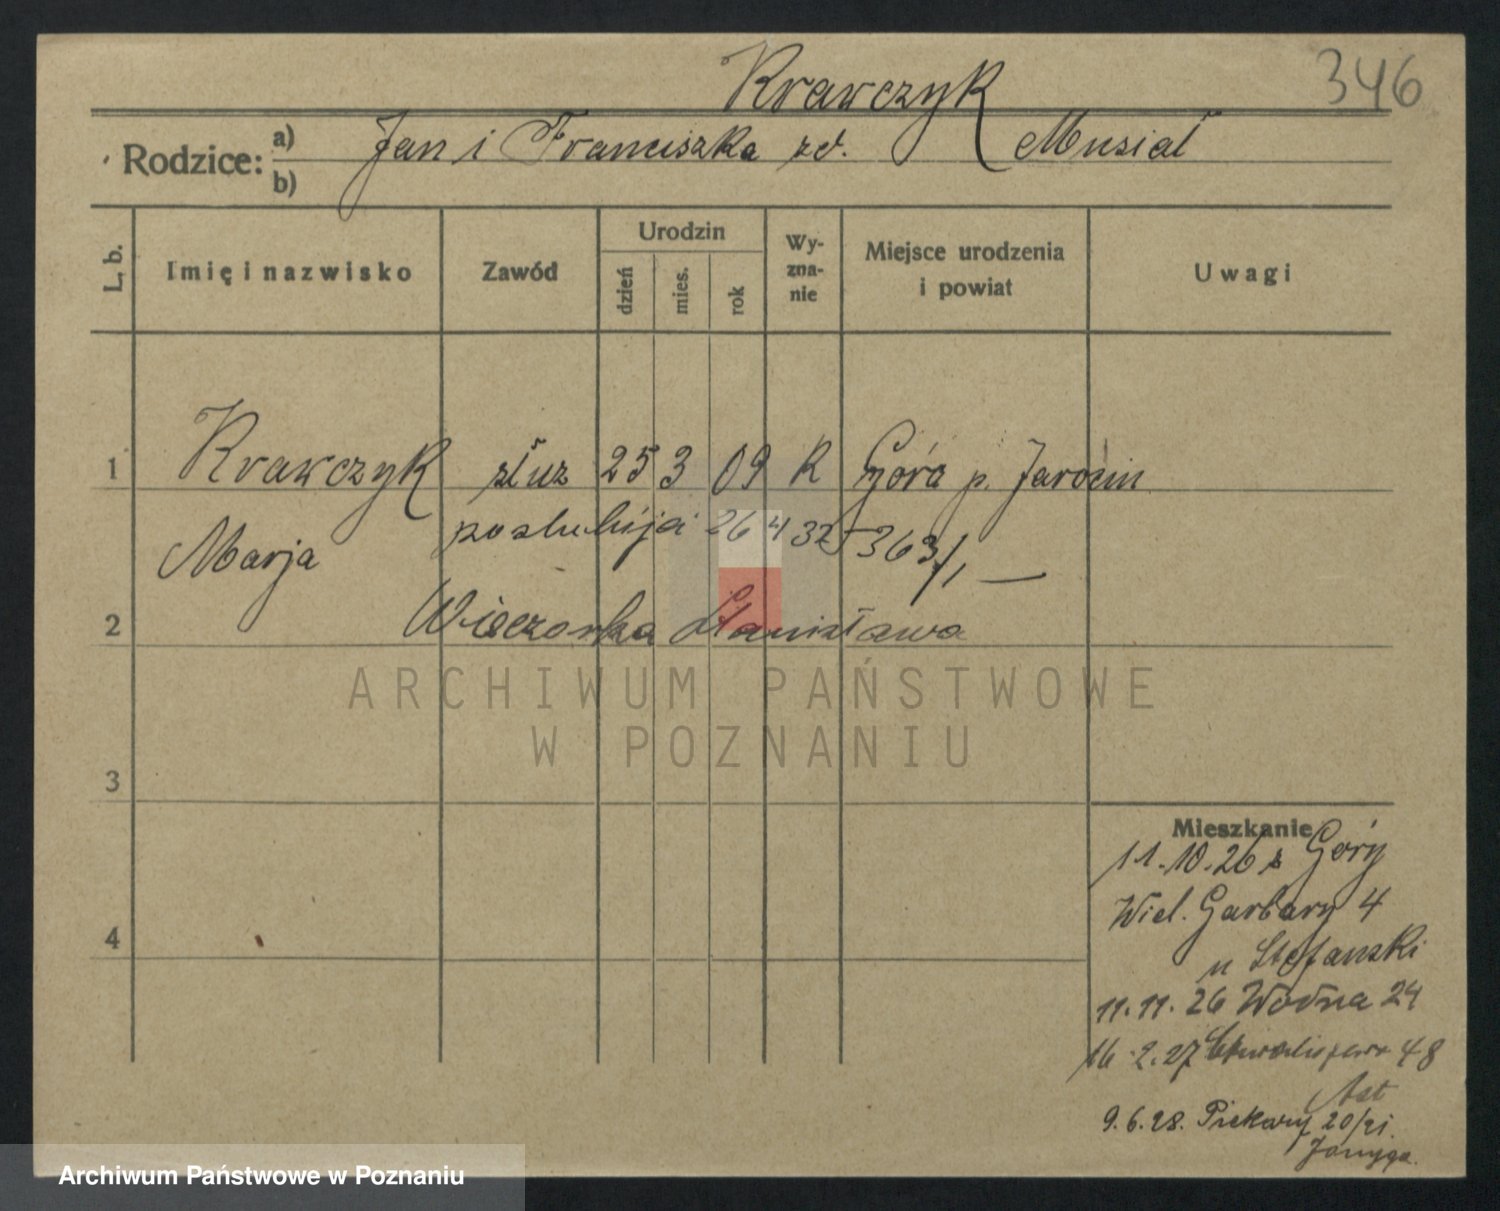 Krawczyk
346
Rodzice: a) Jan i Franciszka zd. Musiał
b)
L. b. Imię i nazwisko Zawód Urodzin dzień mies. rok Wy-zna-nie Miejsce urodzenia i powiat Uwagi
1 Krawczyk służ 25 3 09 K Góra p. Jarocin
poslubija 26 4 32 363/1 —
Marja
2 Wieczorka Stanisława
ARCHIWUM PAŃSTWOWE
W POZNANIU
3
Mieszkanie
11.10.26 z Góry
Wiel. Garbary 4
4
u Stefanski
11.11.26 Wodna 24
16.2.27 48
9.6.28. Piekary 20/21
Archiwum Państwowe w Poznaniu